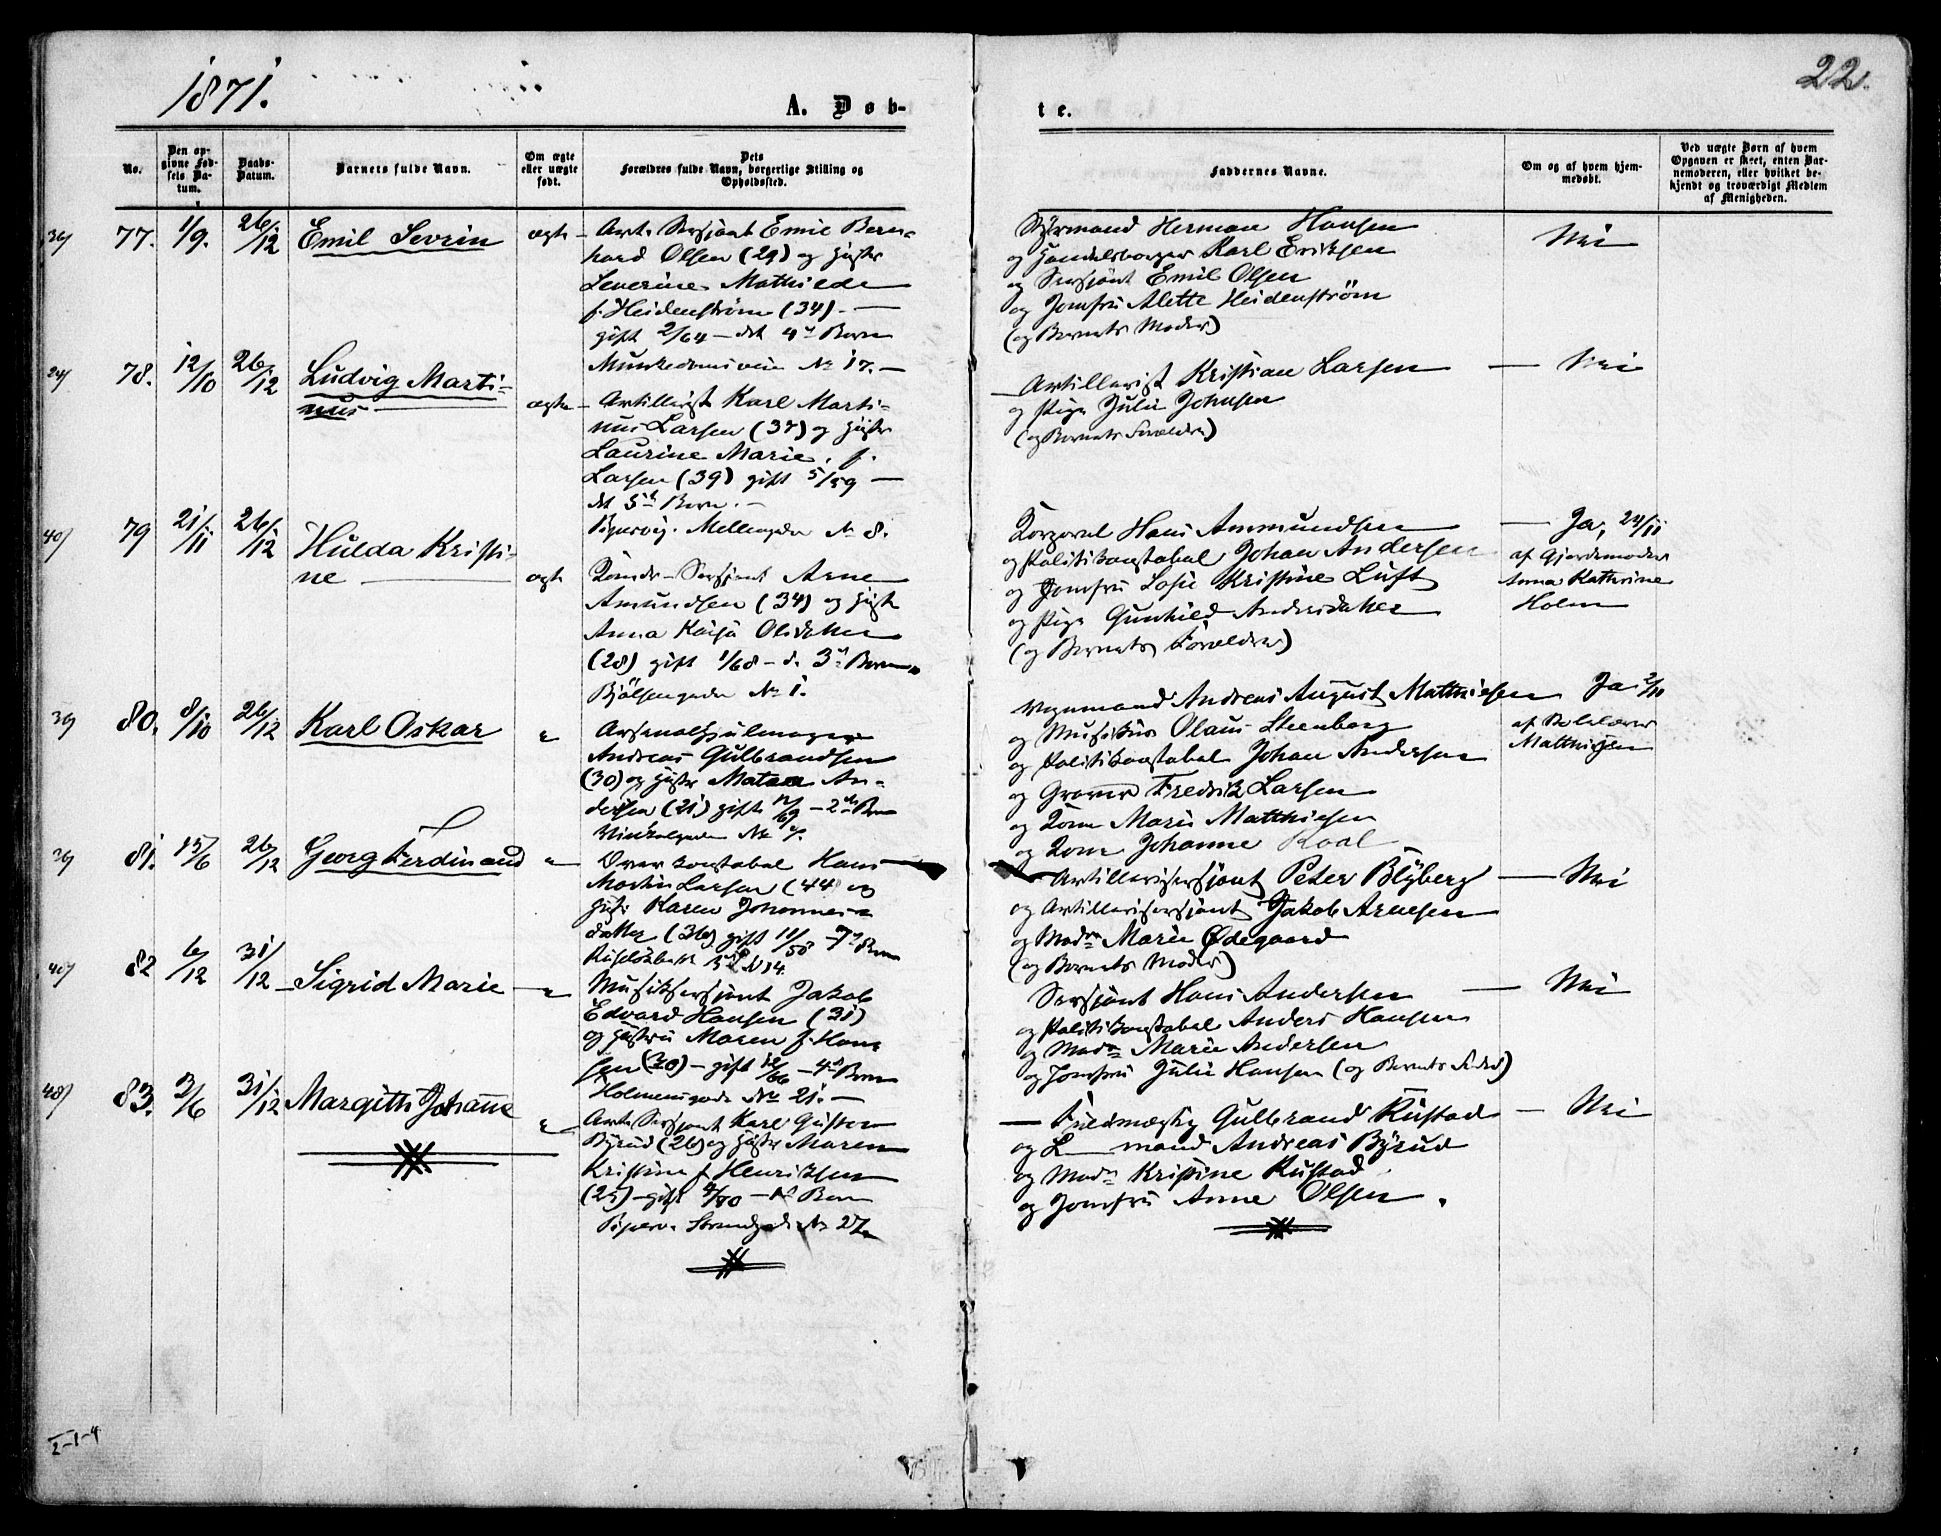 1871.
22.
A. Døb-
te.
No.
Den op-
givne Fød-
sels Da-
tum.
Daabs-
Datum.
Barnets fulde Navn.
Om ægte
eller uægte
født.
Dets
Forældres fulde Navn, borgerlige Stilling og
Opholdssted.
Faddernes Navne.
Om og af hvem hjem-
medøbt.
Ved uægte Børn af hvem
Opgaven er skeet, enten Bar-
nemoderen, eller hvilket be-
kjendt og troværdigt Medlem
af Menigheden.
77. 1/9. 26/12 Emil Sevrin ægte
Art. Sersjant Emil Bern-
hard Olsen (29) og Hustr
Severine Mathilde
f. Heidenstrøm (34). —
gift 2/64 — det 4de Barn
Munkedamsveien No 17. —
Styrmand Herman Hansen
og Handelsborger Karl Eriksen
og Sersjant Emil Olsen
og Jomfru Alette Heidenstrøm
(og Barnets Moder)
Nei
78. 12/10 26/12 Ludvig Marti-
nus ægte
Artillerist Karl Marti-
nus Larsen (37) og Hustr
Laurine Marie, f.
Larsen (39) gift 5/59 —
det 5te Barn. —
Pipervig. Mellemgaden No 8.
Artillerist Kristian Larsen
og Pige Julie Johnsen
(og Barnets Forældre)
Nei
40/ 79 21/11 26/12 Hulda Kristi-
ne ægte
Sersjant Arne
Amundsen (34) og Hustr
Anna Kaisa Olsdatter
(28) gift 1/68 — d. 3de Barn
Bjølsengaden No 1.
Korporal Hans Ammundsen
og Politikonstabel Johan Andersen
og Jomfru Sofie Kristine Luft
og Pige Gunhild Andersdatter
(og Barnets Forældre)
Ja, 24/11
af Gjordemoder
Anna Kathrine
Holm
80. 8/10 26/12 Karl Oskar "
Arsenalhjulmager
Andreas Gulbrandsen
(30) og Hustr An-
dersen (21) gift 12/69 — 2det Barn
Vinkelgaden No
Vognmand Andreas August Matthiesen
og Musikus Olaus Steenberg
og Politikonstabel Johan Andersen
og Graver Fredrik Larsen
og Kone Marie Matthiesen
og Kone Johanne Roal
Ja
af Skolelærer
Matthiesen
81. 15/6 26/12 Georg Ferdinand "
Overkonstabel Hans
Martin Larsen (44) og
Hust. Karen Johannes-
datter (36) gift 11/58 — 7de Barn
Artillerisersjant Peter Blyberg
og Artillerisersjant Jakob Arnesen
og Madm Marie Ødegaard
(og Barnets Moder)
Nei
40/ 82 6/12 31/12 Sigrid Marie "
Musiksersjant Jakob
Edvard Hansen (31)
og Hustru Maren f. Han-
sen (30) — gift 12/66 — 4de Barn
Holmensgade No 21. —
Sersjant Hans Andersen
og Politikonstabel Anders Hansen
og Madm Marie Andersen
og Jomfru Julie Hansen (og Barnets Fader)
Nei
48/ 83. 3/6 31/12 Margitti Johanne "
Art. Sersjant Karl Gustav
Byrud (26) og Hustr Maren
Kristine f. Henriksen
(25) — gift — Barn
Piperv. Strandgade No 27.
Fuldmægtig Gulbrand Rustad
og L—mand Andreas Byrud
og Madm Kristine Rustad
og Jomfru Anne Olsen.
Nei
2-1-4